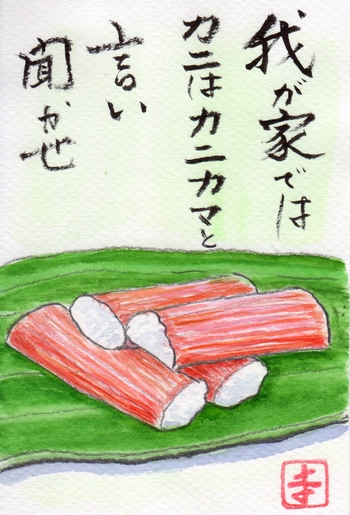 我が家では
カニはカニカマと
言い
聞かせ